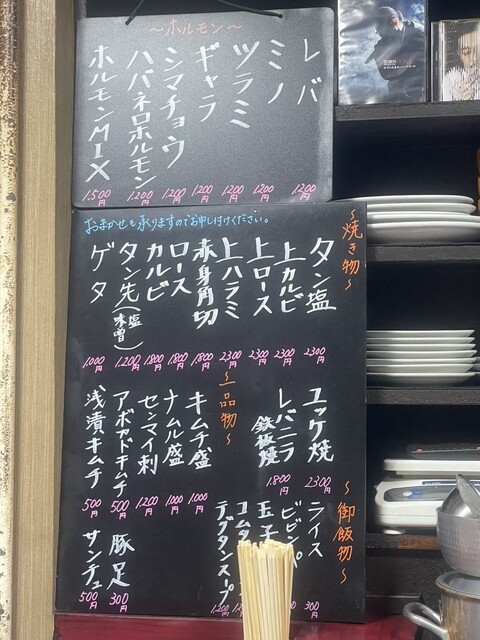 〜ホルモン〜
レバ 1200
ミノ 1200
ツラミ 1200
ギャラ 1200
シマチョウ 1200
ハバネロホルモン 1200円
ホルモンMIX 1,500円
おまかせも承りますのでお申し付けください。
〜焼き物〜
タン塩 2300
上カルビ 2300
上ロース 2300
上ハラミ 2300
赤身角切 1800
ロース 1800
カルビ 1800
タン先(塩味噌) 1,200円
ゲタ 1,000円
ユッケ焼 2300
レバニラ鉄板焼 1800
〜一品物〜
キムチ盛 1000
ナムル盛 1000
センマイ刺 1200
アボカドキムチ 500円
浅漬キムチ 500円
豚足 300円
サンチュ 500円
〜御飯物〜
ライス 300
ビビンバ
玉子
コムタ
テグタンスープ 1,200